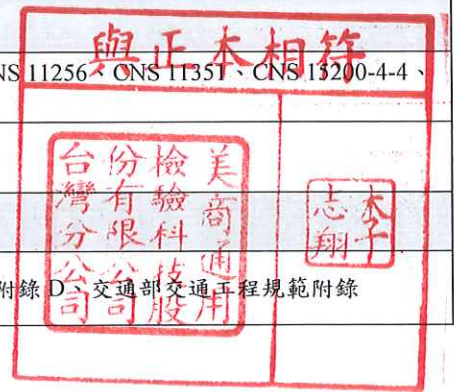 與正本相符
NS 11256、CNS 11351、CNS 15200-4-4、
美商通用
檢驗科技股
份有限公司
台灣分公司
李
志翔
附錄 D、交通部交通工程規範附錄